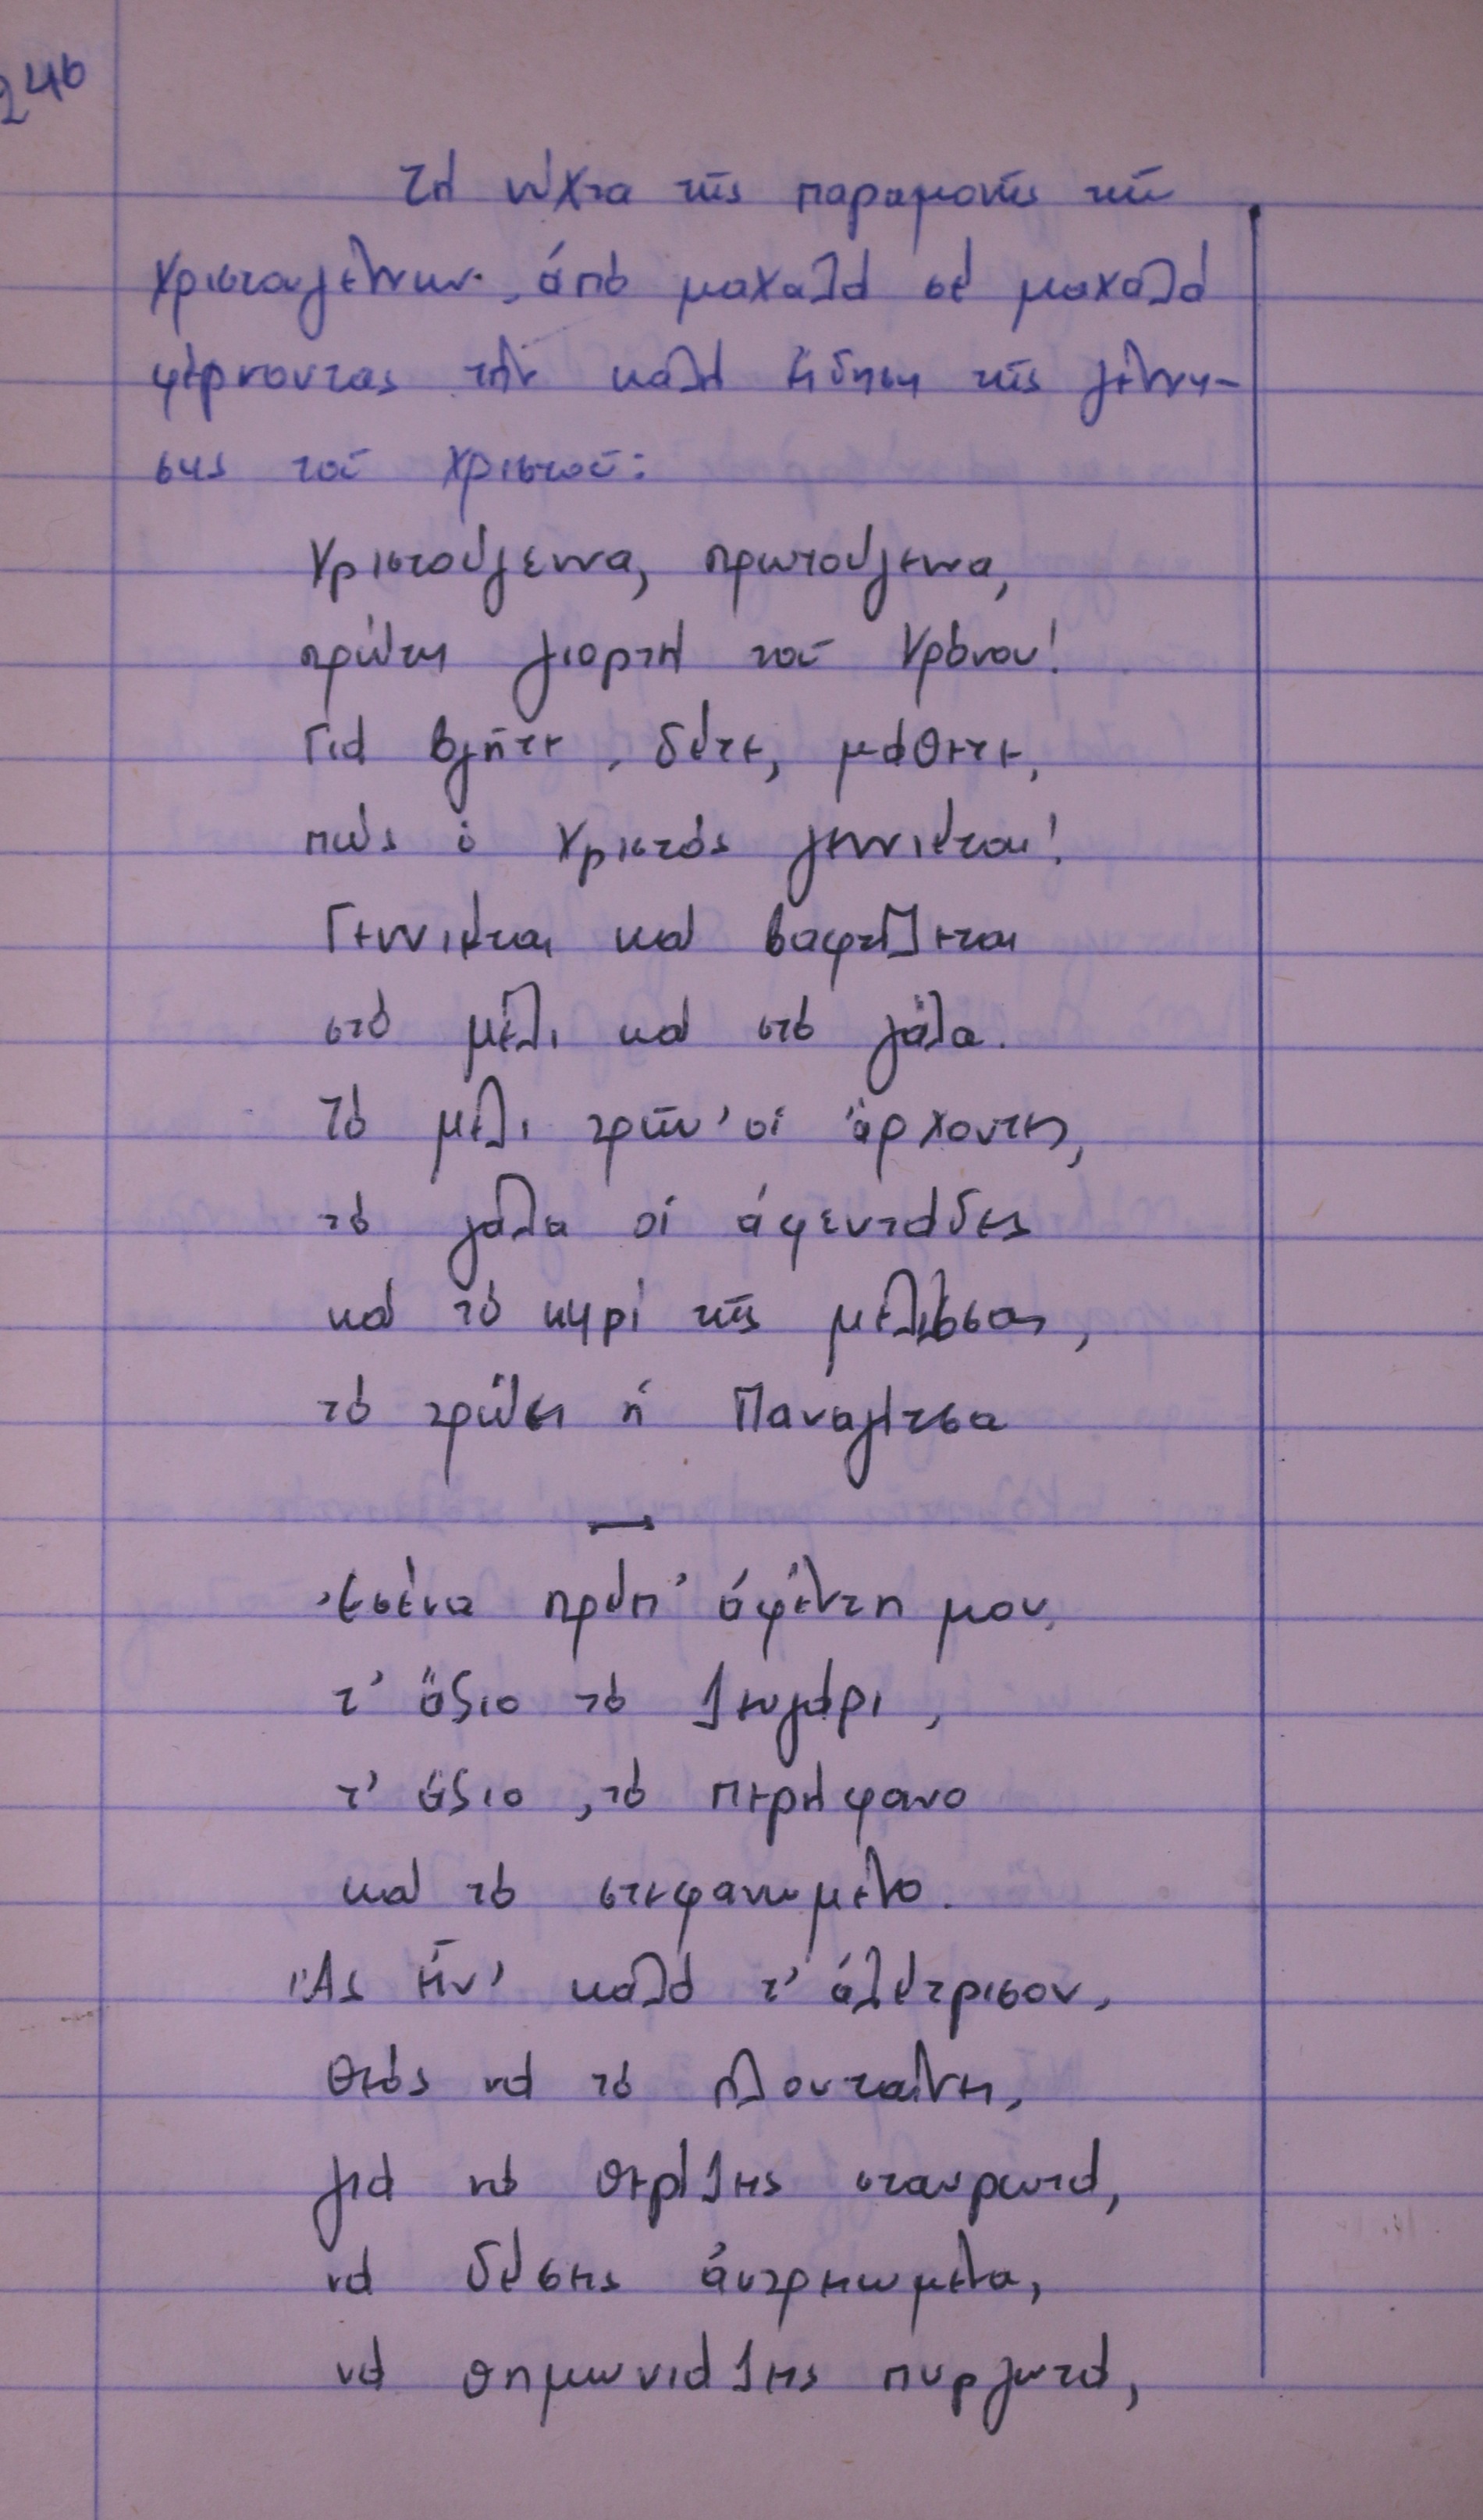 246
Τή νύχτα τῆς παραμονῆς τῶν
Χριστουγέννων, ἀπό μαχαλά σέ μαχαλά
φέρνοντας τήν καλή εἴδηση τῆς γέννη-
σης τοῦ Χριστοῦ:
Χριστούγεννα, πρωτούγεννα,
πρώτη γιορτή τοῦ Χρόνου!
Γιά βγῆτε, δέτε, μάθετε,
πώς ὁ Χριστός γεννιέται!
Γεννιέται καί βαφτίζεται
στό μέλι καί στό γάλα.
Τό μέλι τρῶν' οἱ ἄρχοντες,
τό γάλα οἱ ἀφεντάδες
καί τό κηρί τῆς μελίσσας,
τό τρώει ἡ Παναγίτσα
Ἐσένα πρέπ' ἀφέντη μου,
τ' ἄξιο τό ζευγάρι,
τ' ἄξιο, τό περήφανο
καί τό στεφανωμένο.
Ἄς εἶν' καλά τ' ἀλέτρισου,
Θεός νά τό πλουταίνει,
γιά νά θερίζεις σταυρωτά,
νά δέσεις ἀντρειωμένα,
νά θημωνιάζεις πυργωτά,